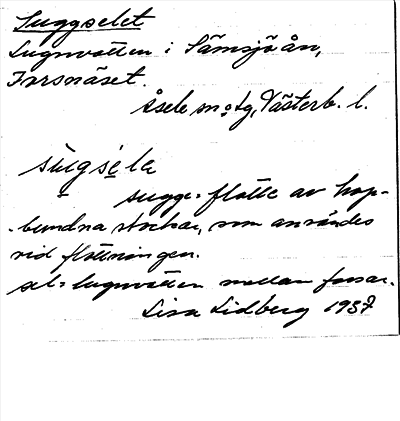 Suggselet
Lugnvatten i Sämsjöån,
Torsnäset.
Åsele sn o tg, Västerb. l.
sùgsèle
sugge = flotte av hop-
-bundna stockar, som användes
vid flottningen.
sel = lugnvatten mellan forsar.
Lisa Lidberg 1937